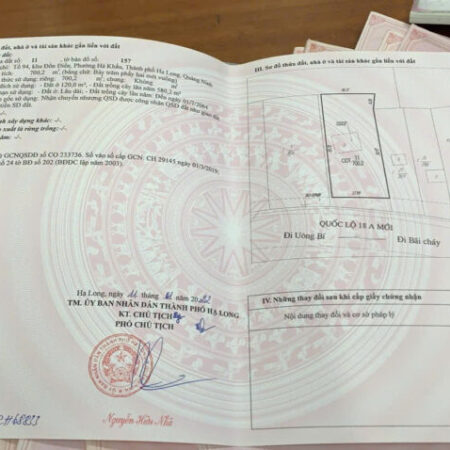 đất, nhà ở và tài sản khác gắn liền với đất
đất số: 11 tờ bản đồ số: 157
chỉ: Tổ 94, khu Đồn Điền, Phường Hà Khẩu, Thành phố Hạ Long, Quảng Ninh.
tích: 700,2 m², (bằng chữ: Bảy trăm phẩy hai mét vuông)
thức sử dụng: riêng: 700,2 m²; chung: Không m²
đích sử dụng: - Đất ở 120,0 m² - Đất trồng cây lâu năm 580,2 m²
- Đất ở: Lâu dài; - Đất trồng cây lâu năm: Đến ngày 01/7/2064
gốc sử dụng: Nhận chuyển nhượng QSD đất được công nhận QSD đất như giao đất
tiền SD đất.
-/-.
trình xây dựng khác: -/-.
sản xuất là rừng trồng: -/-.
năm: -/-.
GCNQSDD số CO 233736. Số vào sổ cấp GCN: CH 29145 ngày 01/3/2019;
số 24 tờ BĐ số 202 (BĐĐC lập năm 2003).
Hạ Long, ngày tháng năm
TM. ỦY BAN NHÂN DÂN THÀNH PHỐ HẠ LONG
KT. CHỦ TỊCH
PHÓ CHỦ TỊCH
Nguyễn Hữu Nhã
III. Sơ đồ thửa đất, nhà ở và tài sản khác gắn liền với đất
11
700,2
QUỐC LỘ 18 A MỚI
Đi Uông Bí
Đi Bãi cháy
IV. Những thay đổi sau khi cấp giấy chứng nhận
Nội dung thay đổi và cơ sở pháp lý